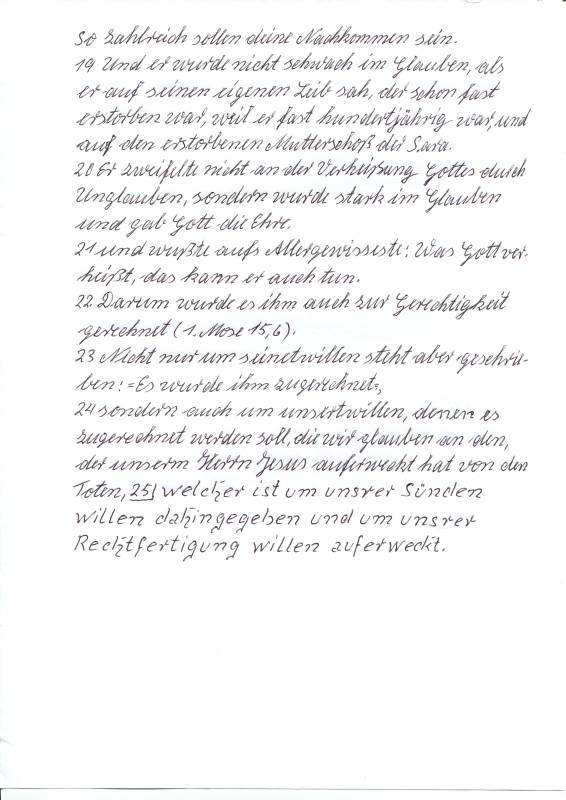 So zahlreich sollen deine Nachkommen sein.
19 Und er wurde nicht schwach im Glauben, als
er auf seinen eigenen Leib sah, der schon fast
erstorben war, weil er fast hundertjährig war, und
auf den erstorbenen Mutterschoß der Sara.
20 Er zweifelte nicht an der Verheißung Gottes durch
Unglauben, sondern wurde stark im Glauben
und gab Gott die Ehre.
21 und wußte aufs Allergewisseste: Was Gott ver-
heißt, das kann er auch tun.
22 Darum wurde es ihm auch zur Gerechtigkeit
gerechnet (1. Mose 15,6).
23 Nicht nur um seinetwillen steht aber geschrie-
ben: =Es wurde ihm zugerechnet=,
24 sondern auch um unsertwillen, denen es
zugerechnet werden soll, die wir glauben an den,
der unserm Herrn Jesus auferweckt hat von den
Toten, 25) welcher ist um unsrer Sünden
willen dahingegeben und um unsrer
Rechtfertigung willen auferweckt.